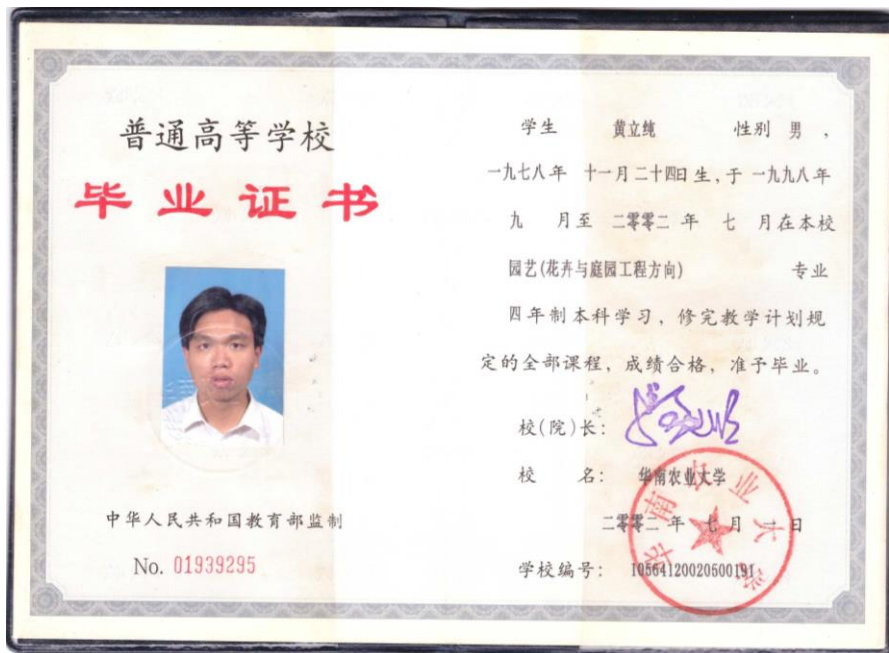 普通高等学校
毕业证书
中华人民共和国教育部监制
No. 01939295
学生 黄立纯 性别 男，
一九七八年 十一月二十四日生，于 一九九八年
九 月至 二零零二 年 七 月在本校
园艺(花卉与庭园工程方向) 专业
四年制本科学习，修完教学计划规
定的全部课程，成绩合格，准予毕业。
校(院)长：
校 名： 华南农业大学
二零零二 年 七 月 日
学校编号： 10564120020500191
华南农业大学